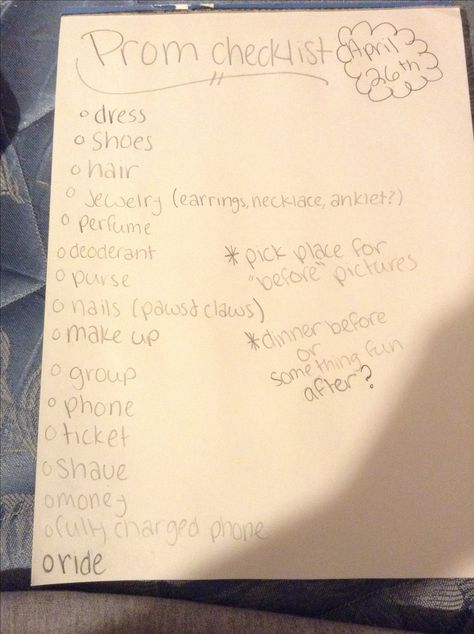 Prom checklist
April
26th
o dress
o shoes
o hair
o Jewelry (earrings, necklace, anklet?)
o perfume
o deoderant
o purse
o nails (paws & claws)
o make up
o group
o phone
o ticket
o Shave
o money
o fully charged phone
o ride
* pick place for
"before" pictures
* dinner before
or
something fun
after?